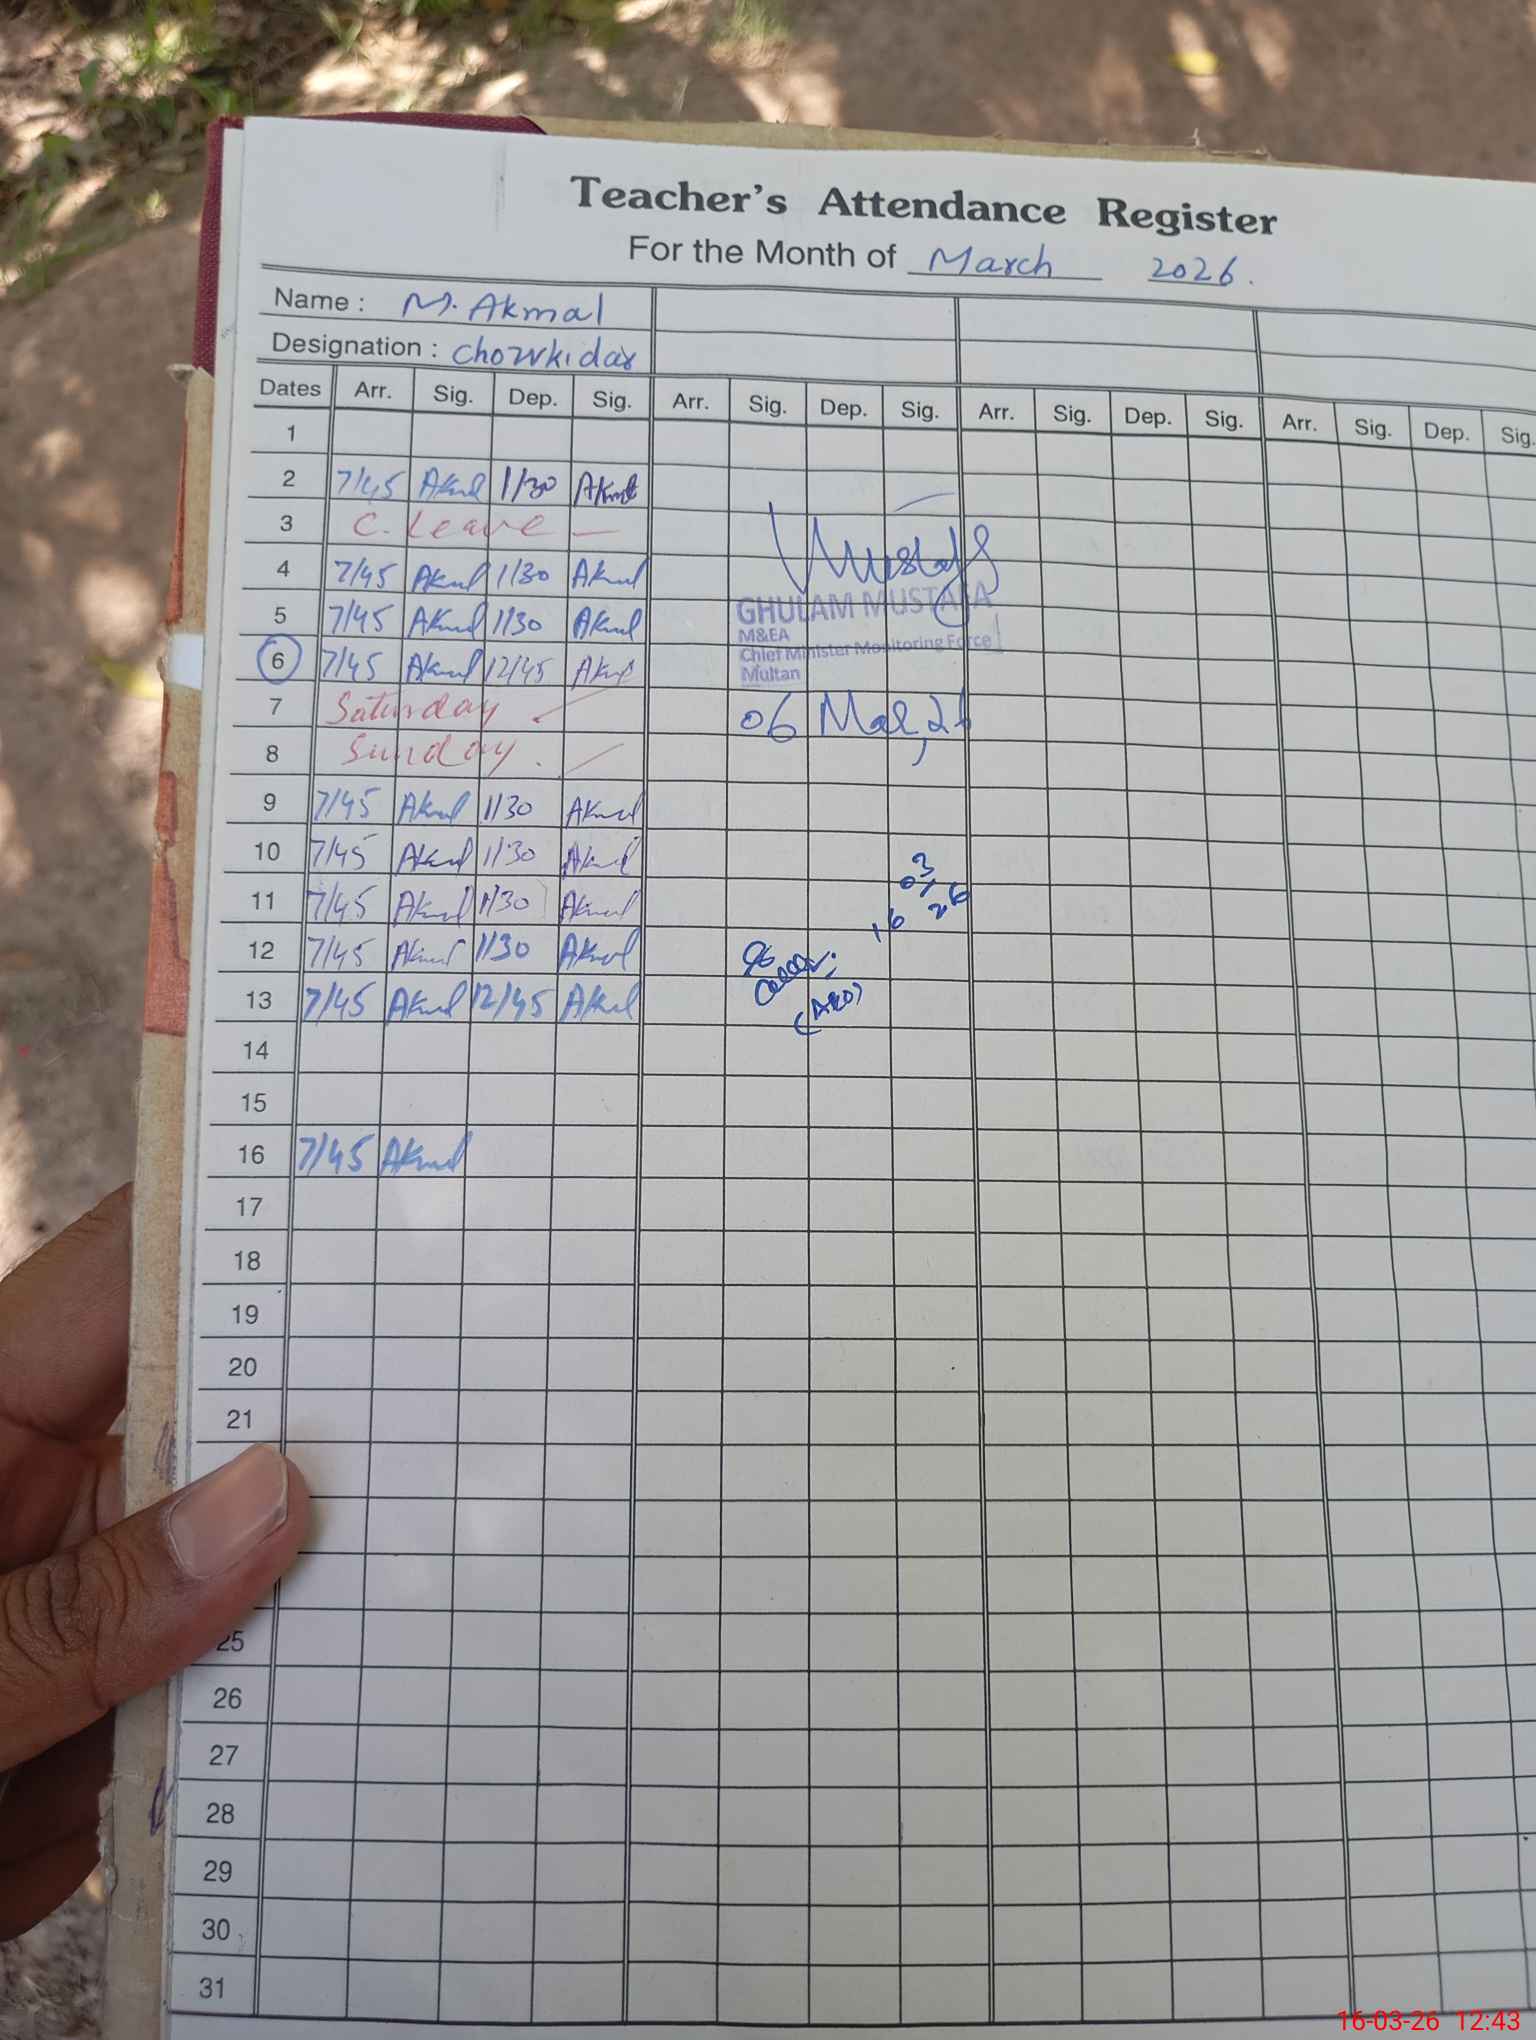 Teacher's Attendance Register
For the Month of March 2026.
Name : M. Akmal
Designation : Chowkidar
Dates Arr. Sig. Dep. Sig. Arr. Sig. Dep. Sig. Arr. Sig. Dep. Sig. Arr. Sig. Dep. Sig.
1
2 7/45 Akmal 1/30 Akmal
3 C. Leave —
4 7/45 Akmal 1/30 Akmal
5 7/45 Akmal 1/30 Akmal
6 7/45 Akmal 12/45 Akmal
7 Saturday
8 Sunday.
9 7/45 Akmal 1/30 Akmal
10 7/45 Akmal 1/30 Akmal
11 7/45 Akmal 1/30 Akmal
12 7/45 Akmal 1/30 Akmal
13 7/45 Akmal 12/45 Akmal
14
15
16 7/45 Akmal
17
18
19
20
21
25
26
27
28
29
30
31
Mustafa
GHULAM MUSTAFA
M&EA
Chief Minister Monitoring Force
Multan
06 Mar, 26
16 03 26
16-03-26 12:43